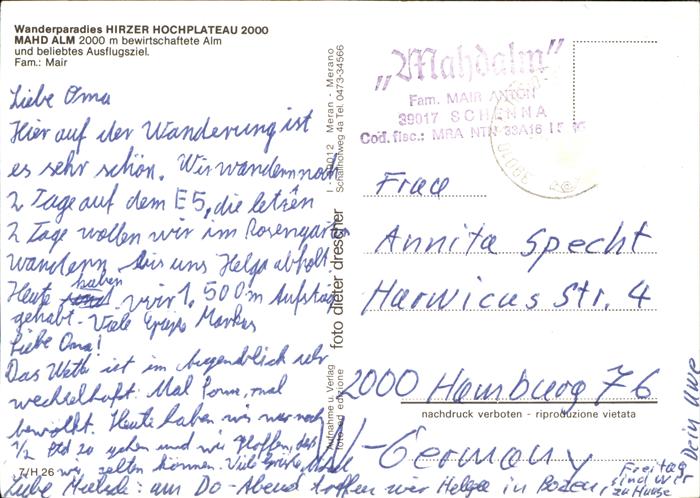 Wanderparadies HIRZER HOCHPLATEAU 2000
MAHD ALM 2000 m bewirtschaftete Alm
und beliebtes Ausflugsziel.
Fam.: Mair
Liebe Oma
Hier auf der Wanderung ist
es sehr schön. Wir wandern noch
2 Tage auf dem E5, die letzten
2 Tage wollen wir im Rosengarten
wandern bis uns Helga abholt.
Heute haben wir 1.500 m Aufstieg
gehabt. Viele Grüße Markus
Liebe Oma!
Das Wetter ist im Augenblick sehr
wechselhaft: Mal Sonne, mal
bewölkt. Heute haben wir nur noch
1/2 Std zu gehen und wir hoffen, daß
wir zelten können. Viele Grüße
Liebe : am Do-Abend treffen wir Helga in Bozen,
Freitag
sind wir
zu Hause
Dein Uwe
7/H 26
foto dieter drescher
Aufnahme u. Verlag
foto ed edizione
I - 39012 Meran - Merano
Schallhofweg 4a Tel. 0473-34566
„Mahdalm"
Fam. MAIR ANTON
39017 SCHENNA
Cod. fisc.: MRA NTN 33A16
39010
Frau
Annita Specht
Harwicus Str. 4
2000 Hamburg 76
nachdruck verboten - riproduzione vietata
Germany